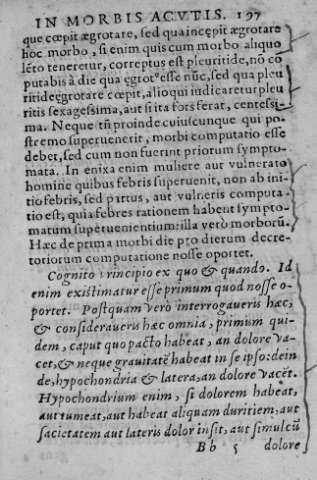 IN MORBIS ACVTIS. 197
que cœpit ægrotare, sed qua incepit ægrotare
hoc morbo, si enim quis cum morbo aliquo
lēto teneretur, correptus est pleuritide, nō cō
putabis à die qua ęgrotᵉesse nūc, sed qua pleu
ritide ęgrotare cœpit, alioqui iudicaretur pleu
ritis sexagessima, aut si ita fors ferat, centessi-
ma. Neque tñ proinde cuiuscunque qui po-
stremo superuenerit, morbi computatio esse
debet, sed cum non fuerint priorum sympto-
mata. In enixa enim muliere aut vulnerato
homine quibus febris superuenit, non ab ini-
tio febris, sed partus, aut vulneris computa
tio est, quia febres rationem habent sympto-
matum superuenientium: illa verò morborū.
Hæc de prima morbi die pro dierum decre-
toriorum computatione nosse oportet.
Cognito principio ex quo & quando. Id
enim existimatur esse primum quod nosse o-
portet. Postquam verò interrogaueris hæc,
& consideraueris hæc omnia, primum qui-
dem, caput quo pacto habeat, an dolore va-
cet, & neque grauitatē habeat in se ipso: dein
de, hypochondria & latera, an dolore vacēt.
Hypochondrium enim, si dolorem habeat,
aut tumeat, aut habeat aliquam duritiem, aut
sacietatem aut lateris dolor insit, aut simul cū
B b 5 dolore